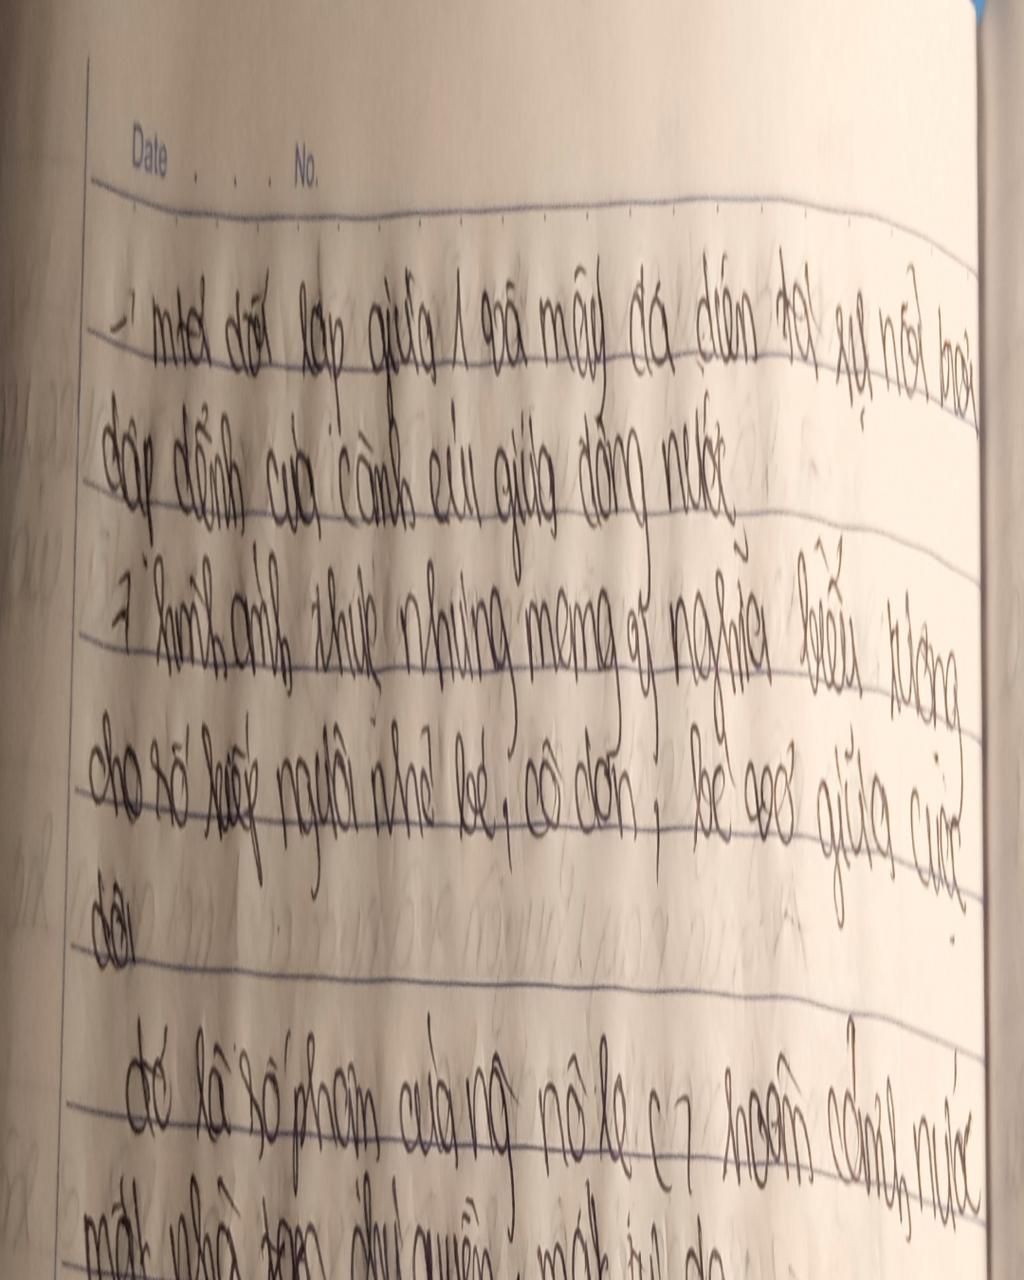 Date . . . No.
→ mtơi đối lập giữa 1 và mấy đã diễn tả sự nổi bơi
dập dềnh của cành củi giữa dòng nước
→ hình ảnh thực nhưng mang ý nghĩa biểu tượng
cho số kiếp người nhỏ bé, cô đơn, bé vơ giữa cuộc
đời
đó là số phận của ng nô lệ ( hoàn cảnh nước
mất nhà tan, chủ quyền, mất tự do